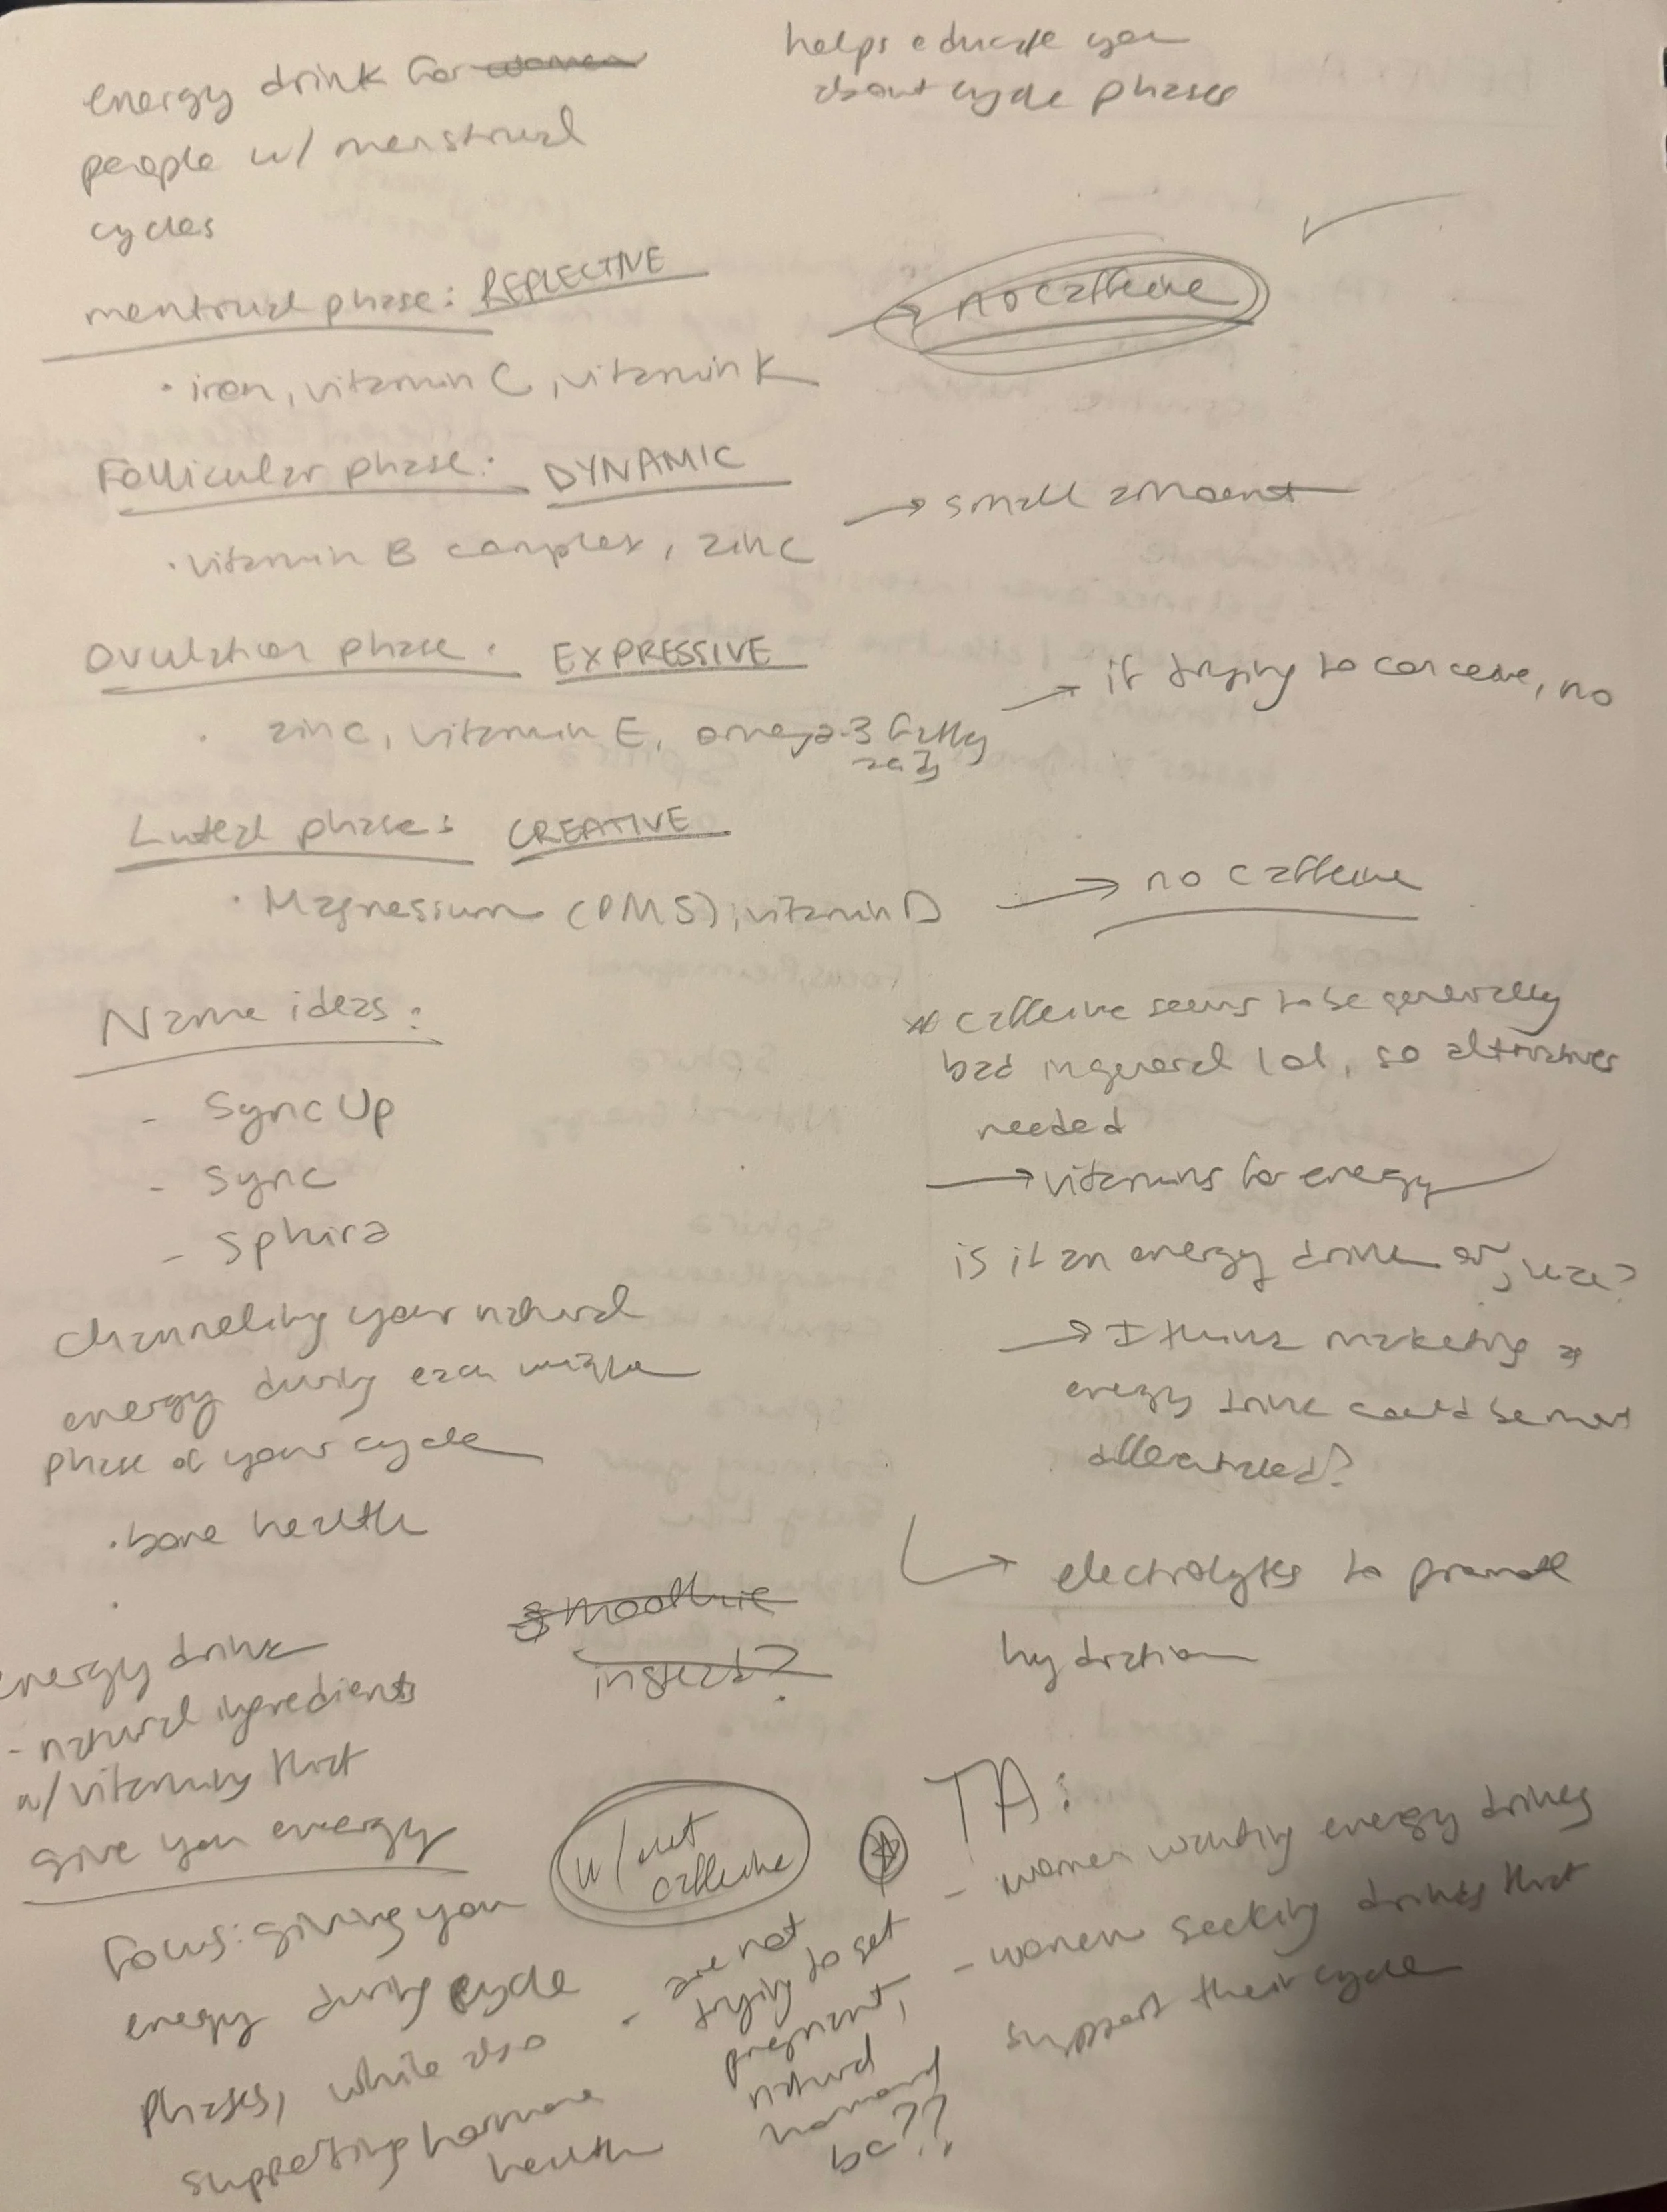 energy drink for women
people w/ menstrual
cycles
helps educate you
about cycle phases
mentrual phase: REFLECTIVE
→ no caffeine
· iron, vitamin C, vitamin K
Follicular phase: DYNAMIC
→ small amount
· vitamin B complex, zinc
Ovulation phase: EXPRESSIVE
→ if trying to conceive, no
· zinc, vitamin E, omega-3 fatty
acids
Luteal phase: CREATIVE
· Magnesium (PMS), vitamin D → no caffeine
Name ideas:
- Sync Up
- Sync
- Sphira
* caffeine seems to be generally
bad in general lol, so alternatives
needed
→ vitamins for energy
is it an energy drink or juice?
→ I think marketing as
energy drink could be most
differentiated?
channeling your natural
energy during each unique
phase of your cycle
· bone health
·
→ electrolytes to promote
hydration
smoothie
instead?
energy drink
- natural ingredients
w/ vitamins that
give you energy
w/out
caffeine
Focus: giving you
energy during cycle
phases, while also
supporting hormone
health
TA:
- women wanting energy drinks
- women seeking drinks that
support their cycle
- are not
trying to get
pregnant,
natural
hormonal
bc??